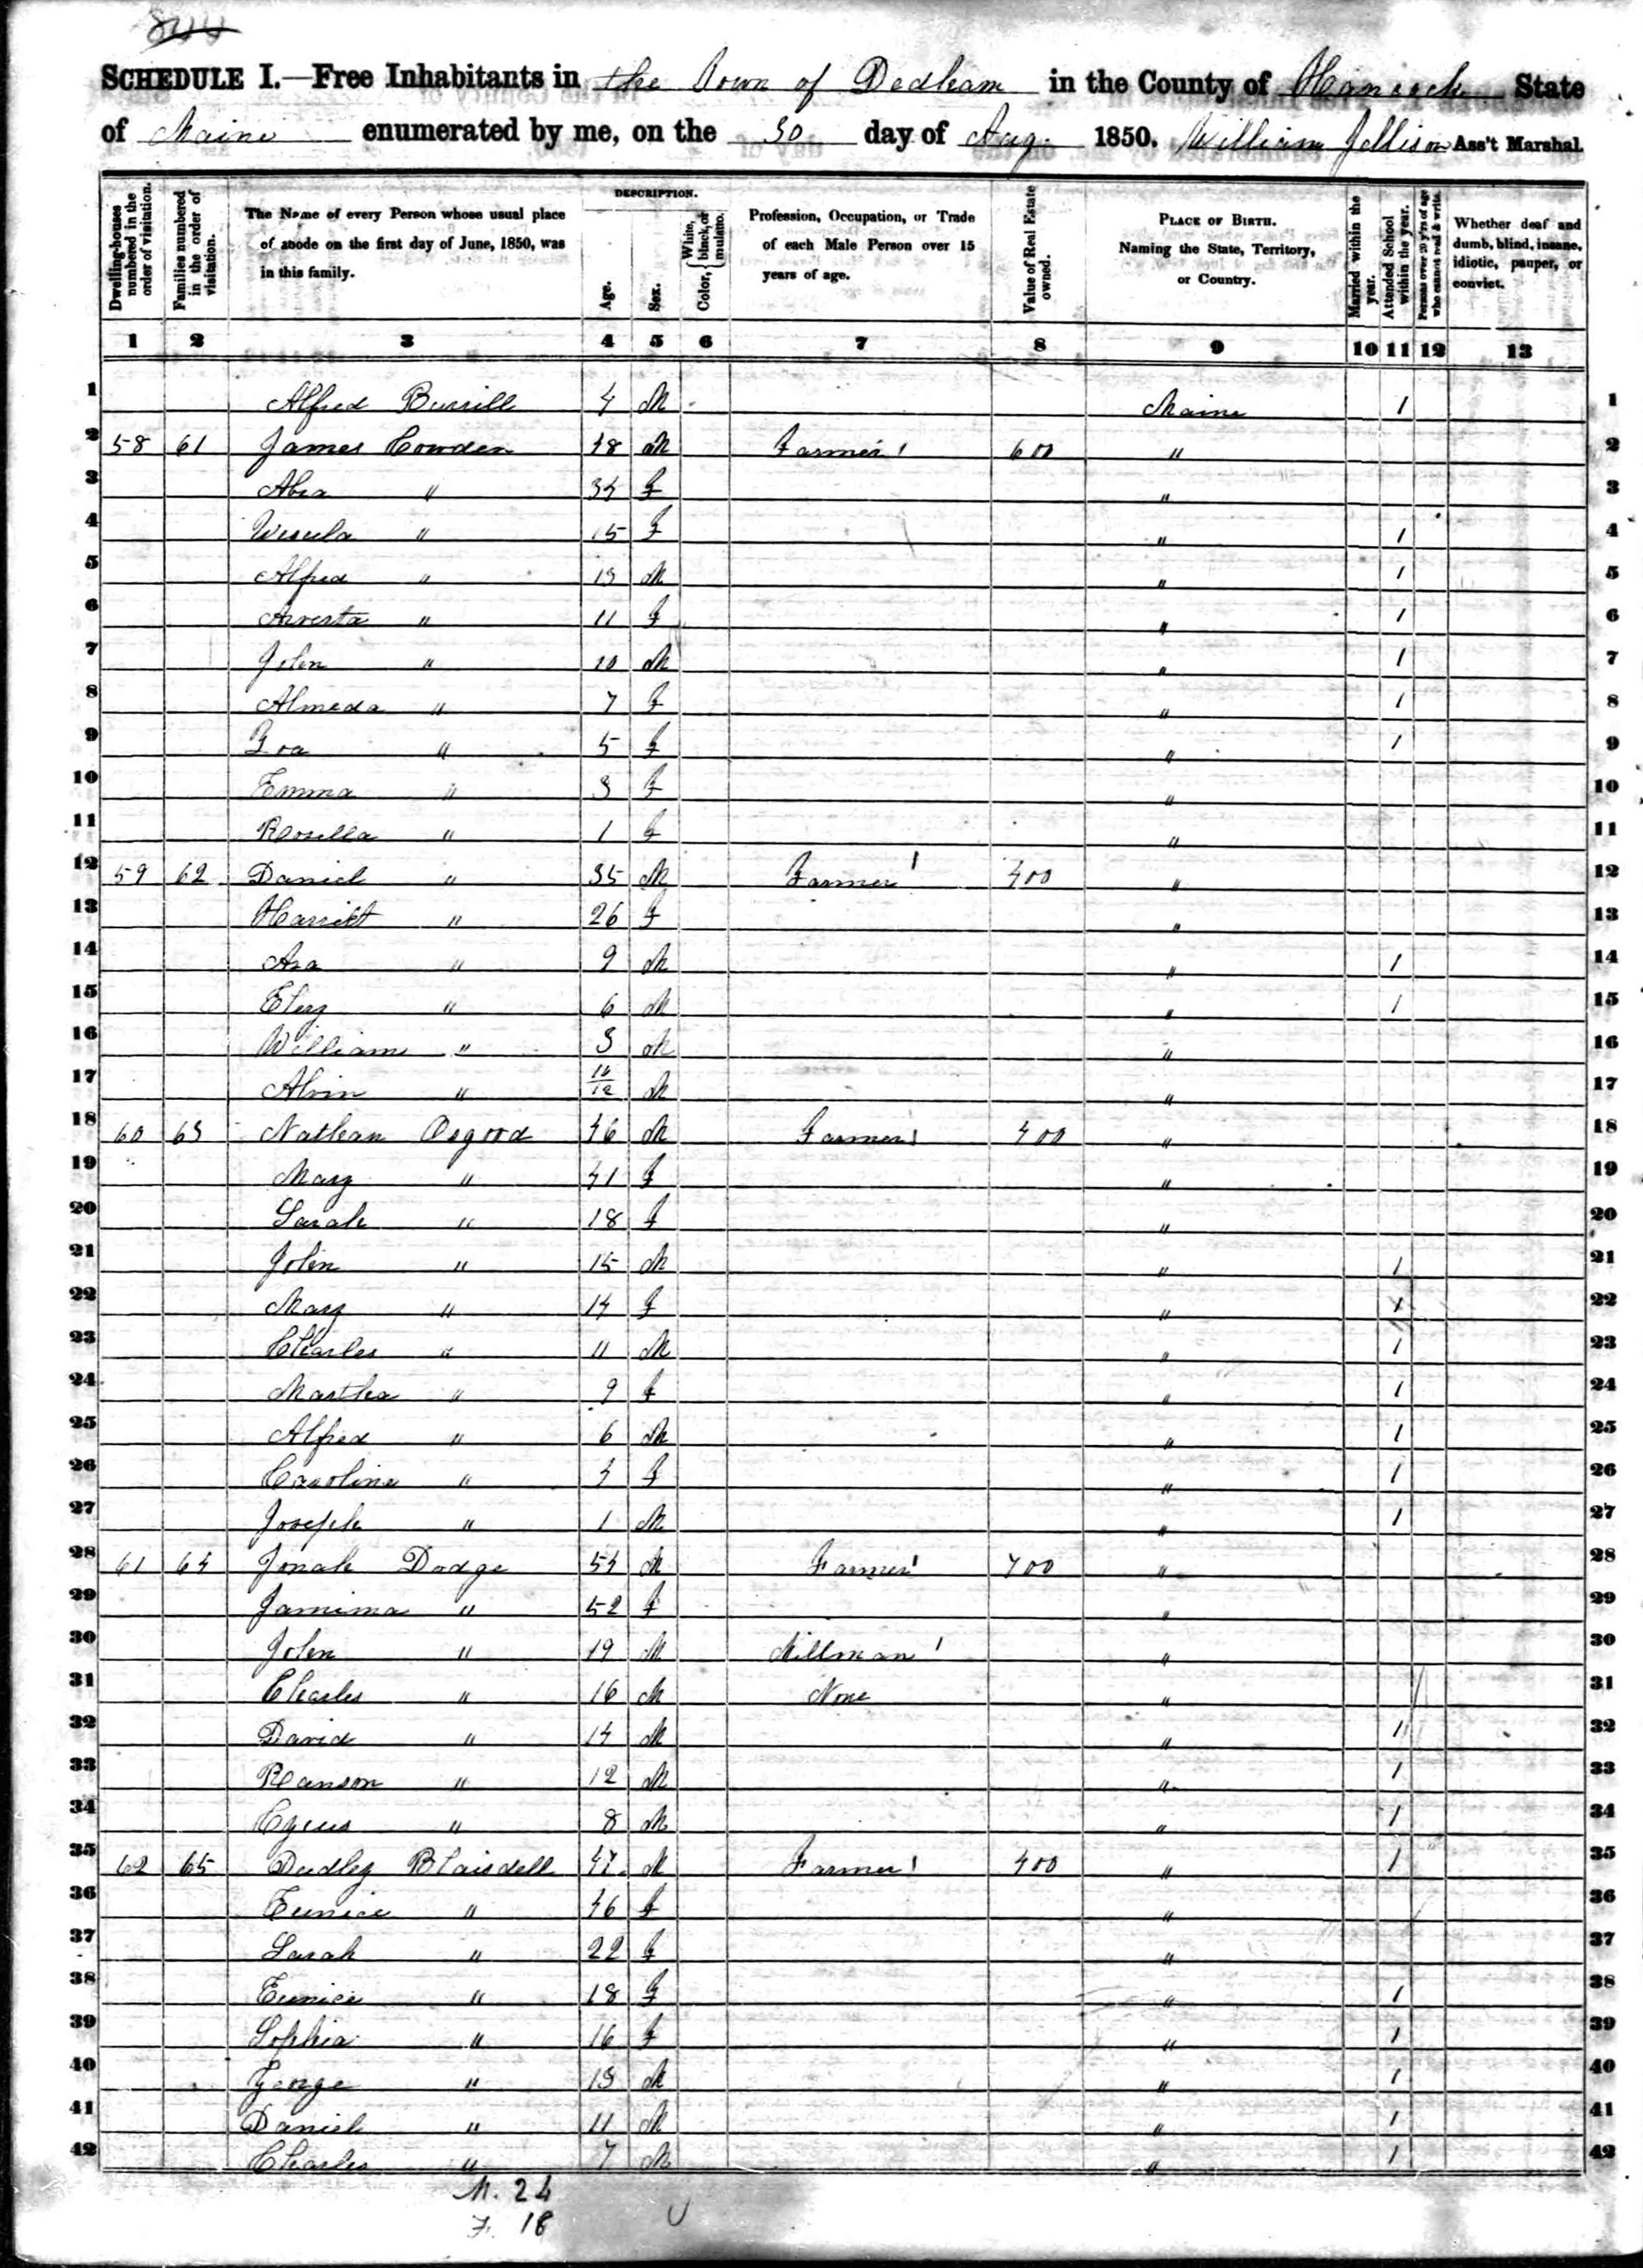 SCHEDULE I.—Free Inhabitants in the Town of Dedham in the County of Hancock State
of Maine enumerated by me, on the 30 day of Aug. 1850. William Jellison Ass't Marshal.
Dwelling-houses numbered in the order of visitation.
Families numbered in the order of visitation.
The Name of every Person whose usual place of abode on the first day of June, 1850, was in this family.
DESCRIPTION.
Age.
Sex.
Color, { White, black, or mulatto.
Profession, Occupation, or Trade of each Male Person over 15 years of age.
Value of Real Estate owned.
PLACE OF BIRTH. Naming the State, Territory, or Country.
Married within the year.
Attended School within the year.
Persons over 20 y'rs of age who cannot read & write.
Whether deaf and dumb, blind, insane, idiotic, pauper, or convict.
1 2 3 4 5 6 7 8 9 10 11 12 13
1 Alfred Burrill 4 M Maine 1 1
2 58 61 James Cowden 48 M Farmer 600 " 2
3 " 34 F " 3
4 " 15 F " 1 4
5 Alfred " 13 M " 1 5
6 Arvesta " 11 F " 1 6
7 John " 10 M " 1 7
8 Almeda " 7 F " 1 8
9 " 5 F " 1 9
10 Emma " 3 F " 10
11 Rosella " 1 F " 11
12 59 62 Daniel " 35 M Farmer 400 " 12
13 Harriet " 26 F " 13
14 Asa " 9 M " 1 14
15 " 6 M " 1 15
16 William " 3 M " 16
17 Alvin " 10/12 M " 17
18 60 63 Nathan Osgood 46 M Farmer 400 " 18
19 Mary " 41 F " 19
20 Sarah " 18 F " 20
21 John " 15 M " 1 21
22 Mary " 14 F " 1 22
23 Charles " 11 M " 1 23
24 Martha " 9 F " 1 24
25 Alfred " 6 M " 1 25
26 Caroline " 4 F " 1 26
27 Joseph " 1 M " 1 27
28 61 64 Jonah Dodge 54 M Farmer 700 " 28
29 Jamima " 52 F " 29
30 John " 19 M Millman " 30
31 Charles " 16 M None " 31
32 David " 14 M " 1 32
33 Ranson " 12 M " 1 33
34 Cyrus " 8 M " 1 34
35 62 65 Dudley Blaisdell 47 M Farmer 400 " 1 35
36 Eunice " 46 F " 36
37 Sarah " 22 F " 37
38 Eunice " 18 F " 1 38
39 Sophia " 16 F " 1 39
40 George " 13 M " 1 40
41 Daniel " 11 M " 1 41
42 Charles " 7 M " 1 42
M. 24
F. 18